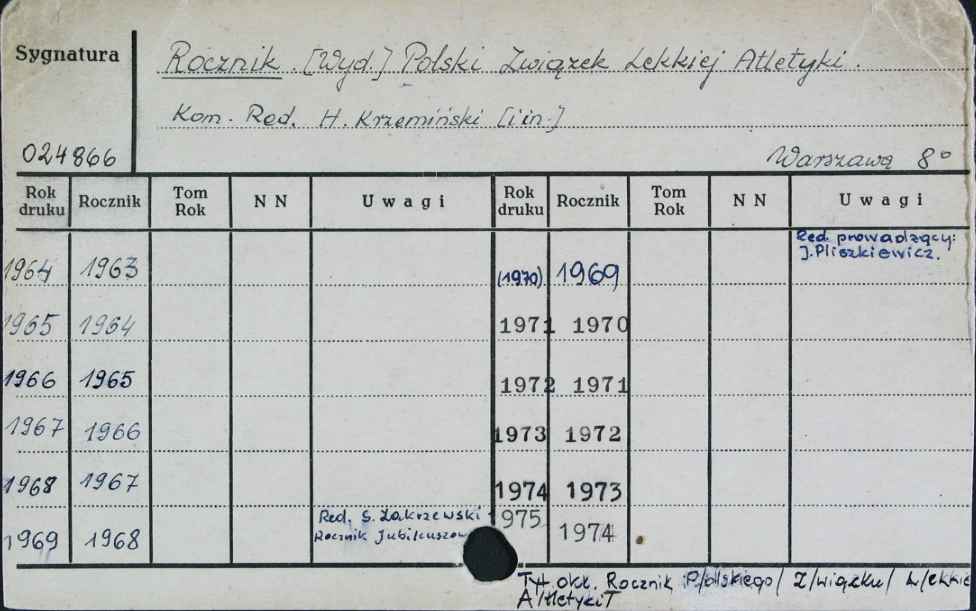 Sygnatura
Rocznik. [Wyd.] Polski Związek Lekkiej Atletyki.
Kom. Red. H. Krzemiński [i in.]
024866
Warszawa 8°
Rok druku Rocznik Tom Rok NN Uwagi Rok druku Rocznik Tom Rok NN Uwagi
Red. prowadzący:
J. Pliszkiewicz.
1964 1963 (1970) 1969
1965 1964 1971 1970
1966 1965 1972 1971
1967 1966 1973 1972
1968 1967 1974 1973
Red. S. Zakrzewski
Rocznik Jubileuszow
1969 1968 975 1974
Tyt. okł. Rocznik P/olskiego/ Z/wiązku/ L/ekkie
A/tletyki